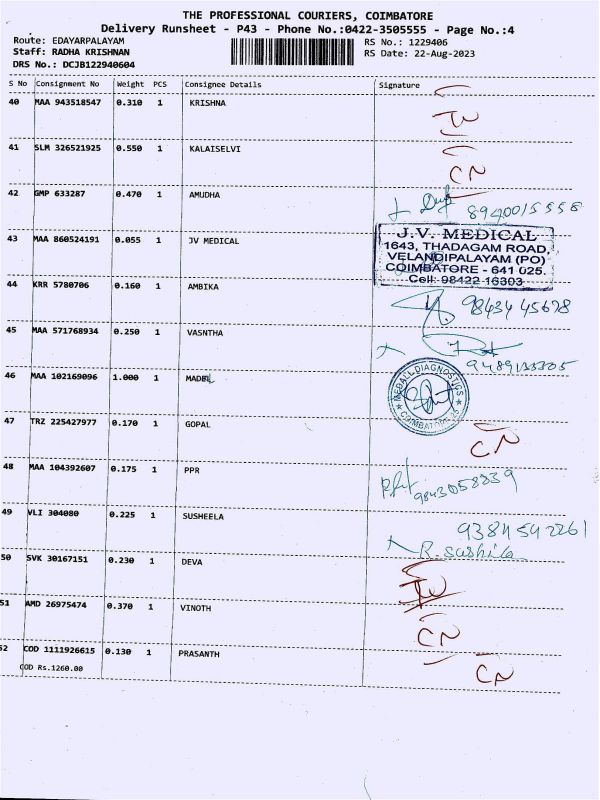 THE PROFESSIONAL COURIERS, COIMBATORE
Delivery Runsheet - P43 - Phone No.:0422-3505555 - Page No.:4
Route: EDAYARPALAYAM
RS No.: 1229406
Staff: RADHA KRISHNAN
RS Date: 22-Aug-2023
DRS No.: DCJB122940604
S No Consignment No Weight PCS Consignee Details Signature
40 MAA 943518547 0.310 1 KRISHNA
41 SLM 326521925 0.550 1 KALAISELVI CN
42 GMP 633287 0.470 1 AMUDHA 8940015558
43 MAA 860524191 0.055 1 JV MEDICAL
J.V. MEDICAL
1643, THADAGAM ROAD,
VELANDIPALAYAM (PO)
COIMBATORE - 641 025.
Cell: 98422 16303
44 KRR 5780706 0.160 1 AMBIKA 98434 45678
45 MAA 571768934 0.250 1 VASNTHA
46 MAA 102169096 1.000 1 MADEL
MEDALL DIAGNOSTICS
COIMBATORE-25
47 TRZ 225427977 0.170 1 GOPAL CN
48 MAA 104392607 0.175 1 PPR 9843058839
49 VLI 304080 0.225 1 SUSHEELA 9384542261
R. Sushila
50 SVK 30167151 0.230 1 DEVA
51 AMD 26975474 0.370 1 VINOTH CN
52 COD 1111926615 0.130 1 PRASANTH CN
COD Rs.1260.00